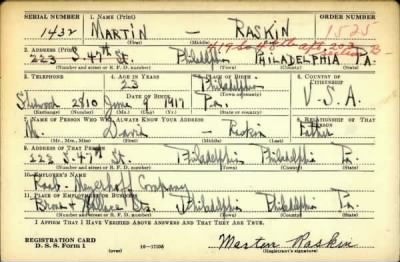 SERIAL NUMBER 1. NAME (Print) ORDER NUMBER
1432 MARTIN — RASKIN 1525
(First) (Middle) (Last)
2. ADDRESS (Print)
223 S. 47th St. Philadelphia PHILADELPHIA PA.
(Number and street or R. F. D. number) (Town) (County) (State)
3. TELEPHONE 4. AGE IN YEARS 5. PLACE OF BIRTH 6. COUNTRY OF CITIZENSHIP
23 Philadelphia
DATE OF BIRTH (Town or county)
Sherwood 2810 June 9 1917 Pa. U-S.A.
(Exchange) (Number) (Mo.) (Day) (Yr.) (State or country)
7. NAME OF PERSON WHO WILL ALWAYS KNOW YOUR ADDRESS 8. RELATIONSHIP OF THAT PERSON
M. David — Raskin Father
(Mr., Mrs., Miss) (First) (Middle) (Last)
9. ADDRESS OF THAT PERSON
223 S. 47th St. Philadelphia Philadelphia Pa.
(Number and street or R. F. D. number) (Town) (County) (State)
10. EMPLOYER'S NAME
Company
11. PLACE OF EMPLOYMENT OR BUSINESS
Broad & Wallace Sts. Philadelphia Philadelphia Pa.
(Number and street or R. F. D. number) (Town) (County) (State)
I AFFIRM THAT I HAVE VERIFIED ABOVE ANSWERS AND THAT THEY ARE TRUE.
REGISTRATION CARD
D. S. S. Form 1 (over) 16—17105 Martin Raskin
(Registrant's signature)